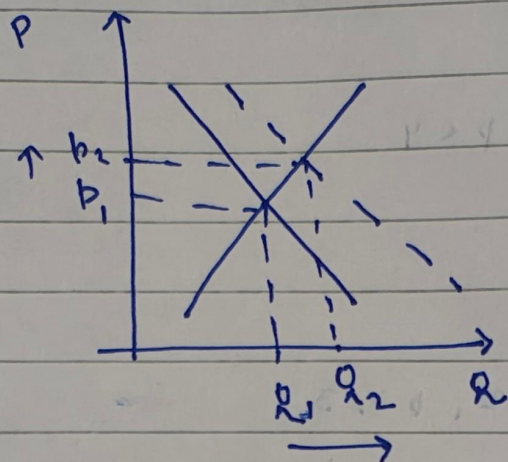 P
p₂
p₁
Q₁ Q₂ Q